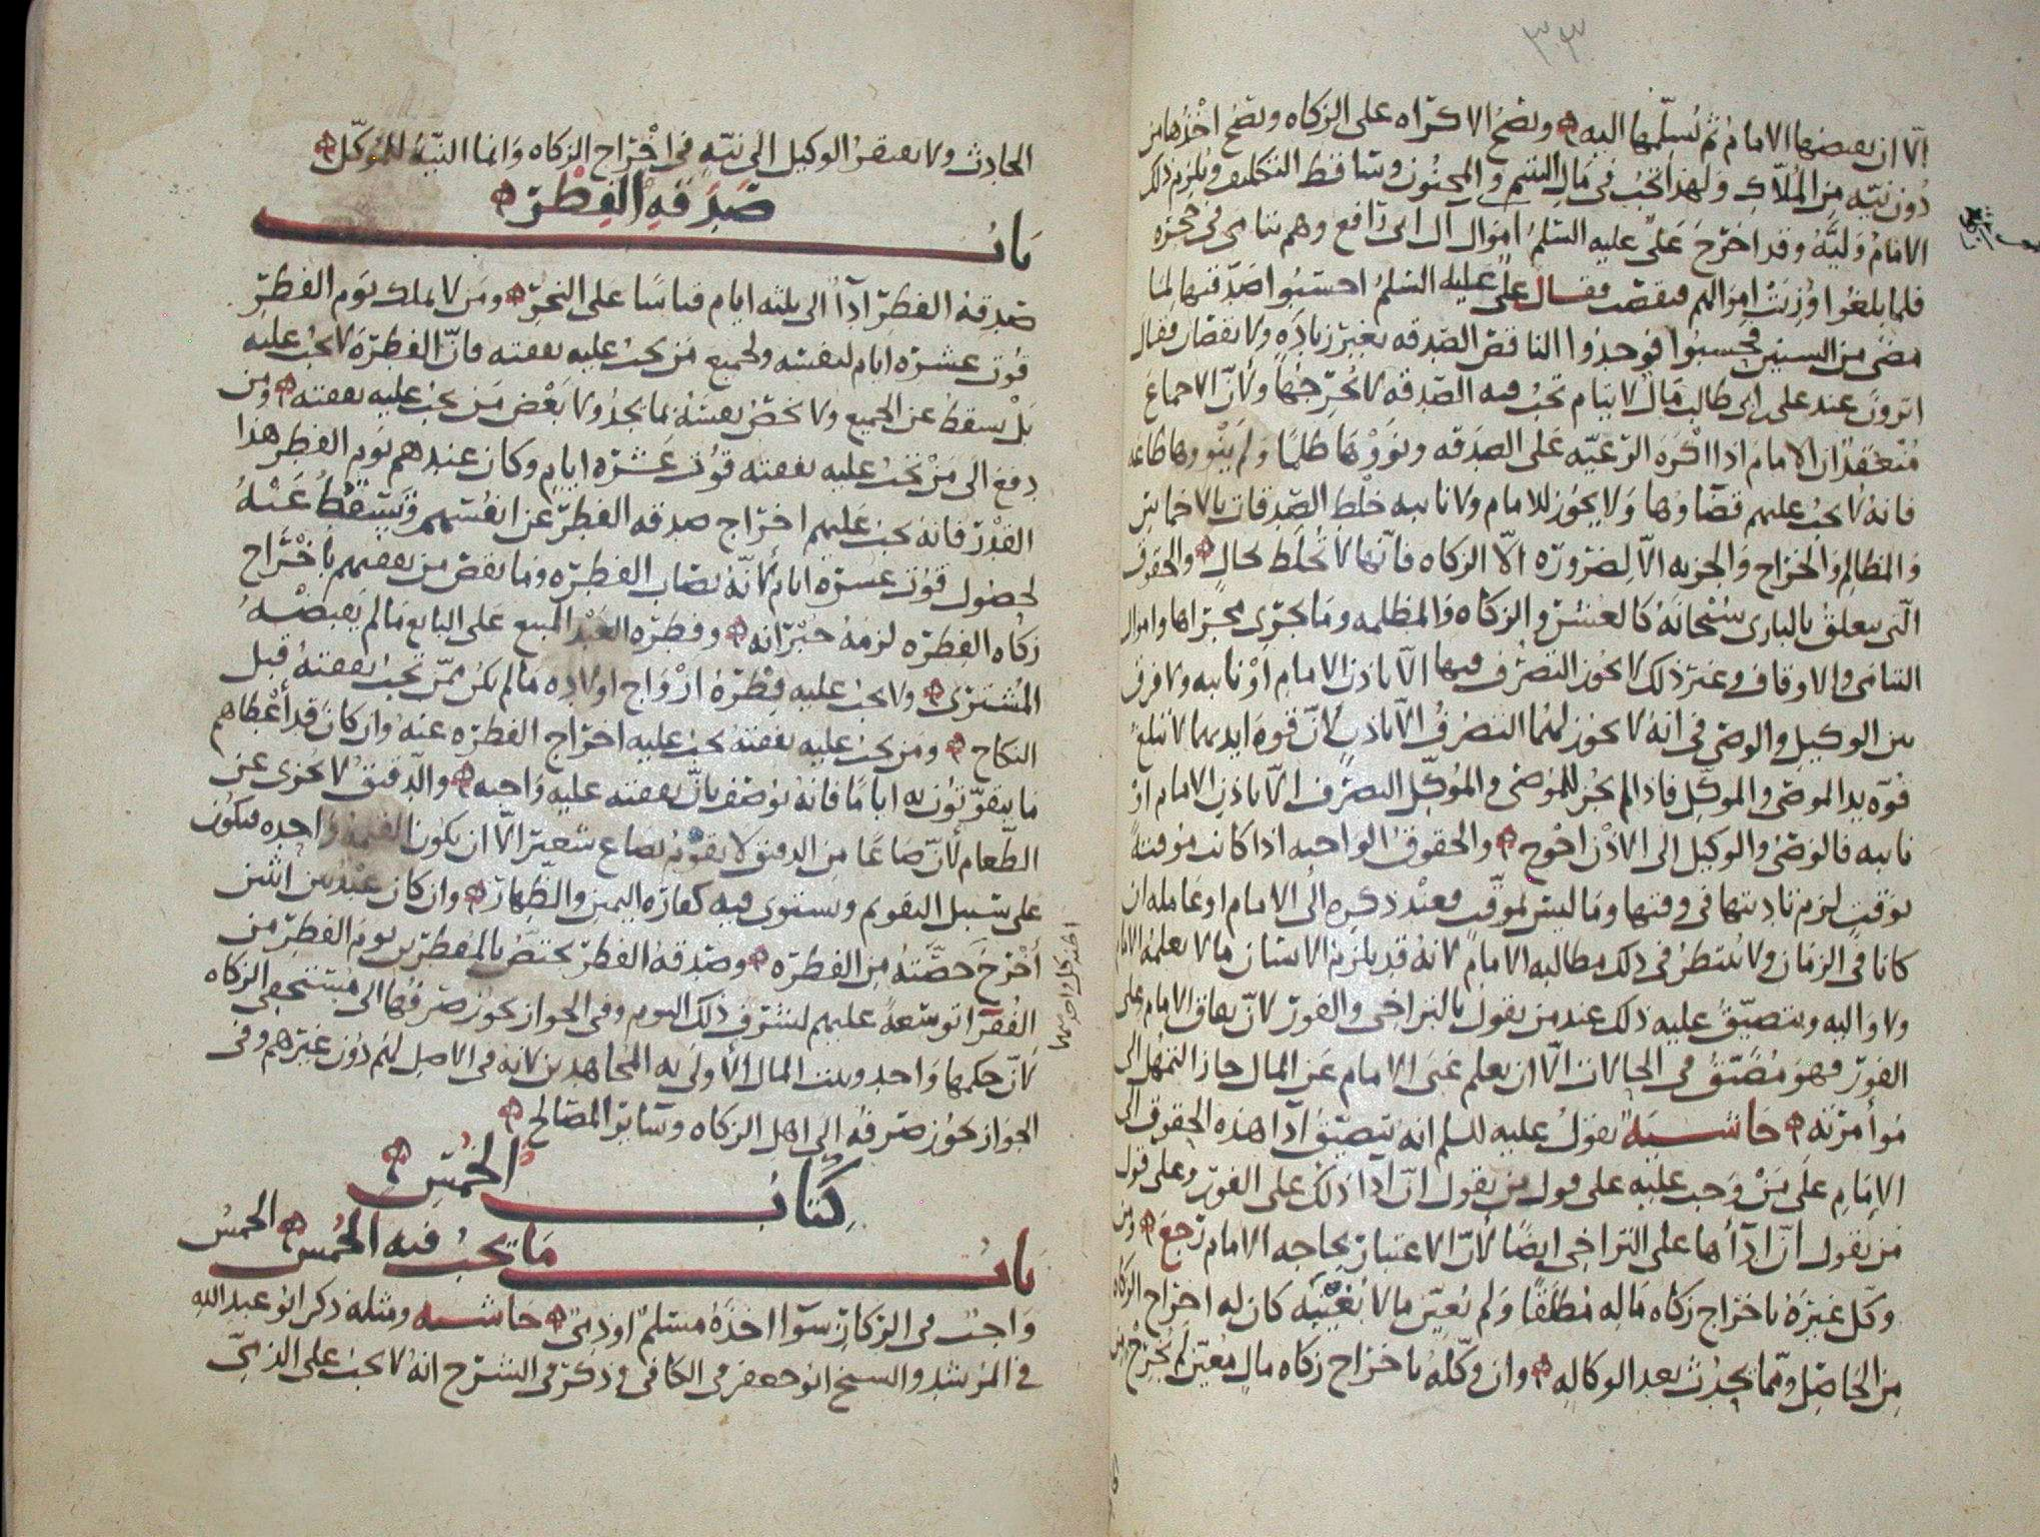 ٣٣
الا ان يقبضها الامام ثم يسلمها اليه وتصح الاكراه على الزكاه وتصح اخذها من
دون نيه من الملاك ولهذا تجب في مال اليتيم والمجنون وساقط التكليف ويلزم ذلك
الامام وليه وقد اخرج على عليه السلم اموال ال ابى رافع وهم يتامى في حجره
فلما بلغوا وزنت اموالهم فنقصت فقال على عليه السلم احسبوا صدقتها لما
مضى من السنين فحسبوا فوجدوا الناقص الصدقه بغير زياده ولا نقصان فقال
اترون عند على بن ابى طالب مال لايتام تجب فيه الصدقه لا يخرجها ولان الاجماع
منعقد ان الامام اذا اكره الرعيه على الصدقه ونووها ظلما ولم ينووها طاعه
فانه لا يجب عليهم قضاوها ولا يجوز للامام ولا نايبه خلط الصدقات بالاخماس
والمظالم والخراج والجزيه الا لضروره الا الزكاه فانها لا تخلط بحال والحقوق
التى يتعلق بالبارى سبحانه كالعشر والزكاه والمظلمه وما يجرى مجراها واموال
اليتامى والاوقاف وغير ذلك لا يجوز التصرف فيها الا باذن الامام او نايبه ولا فرق
بين الوكيل والوصى في انه لا يجوز لهما التصرف الا باذن لان قوه ايديهما لا تبلغ
قوه يد الموصى والموكل فاذا لم يجز للموصى والموكل التصرف الا باذن الامام او
نايبه فالوصى والوكيل الى الاذن احوج والحقوق الواجبه اذا كانت موقته
بوقت لزم تاديتها في وقتها وما ليس بموقت فعند ذكره الى الامام او عامله ان
كانا في الزمان ولا ينتظر في ذلك مطالبه الامام لانه قد يلزم الانسان ما لا يعلمه الامام
ولا واليه ويتضيق عليه ذلك عند من يقول بالتراخى والفور لان بقاق الامام على
الفور فهو مضيق في الحالات الا ان يعلم غنى الامام عن المال جاز التمهل الى
موامرته حاشيه يقول عليه السلم انه يتضيق ادا هذه الحقوق الى
الامام على من وجب عليه على قول من يقول ان ادا ذلك على الفور وعلى قول
من يقول ان اداها على التراخى ايضا لان الاعتبار بحاجه الامام رجع ومن
وكل غيره باخراج زكاه ماله مطلقا ولم يعين ما لا بعينه كان له اخراج الزكاه
من الحاصل ومما يحدث بعد الوكاله وان وكله باخراج زكاه مال معين لم يخرج من
الحادث ولا يفتقر الوكيل الى نيه في اخراج الزكاه وانما النيه للموكل
باب صدقه الفطر
صدقه الفطر اداا الى ثلثه ايام قياسا على النحر ومن لا يملك يوم الفطر
قوت عشره ايام لنفسه ولجميع من يجب عليه نفقته فان الفطره لا يجب عليه
بل يسقط عن الجميع ولا يخص نفسه بما يجد ولا بعض من يجب عليه نفقته ومن
دفع الى من تجب عليه نفقته قوت عشره ايام وكان عندهم يوم الفطر هذا
القدر فانه يجب عليهم اخراج صدقه الفطر عن انفسهم وتسقط عنه
لحصول قوت عشره ايام لانه نصاب الفطره وما نقص من نفقتهم باخراج
زكاه الفطره لزمه جبرانه وفطره العبد المبيع على البايع ما لم يقبضه
المشترى ولا يجب عليه فطره ازواج اولاده ما لم يكن ممن تجب نفقته قبل
النكاح ومن يجب عليه نفقته يجب عليه اخراج الفطره عنه وان كان قد اعطاهم
ما يتقوتون به اياما فانه يوصف بان نفقته عليه واجبه والدقيق لا يجزى عن
الطعام لان صاعا من الدقيق لا يقوم بصاع شعير الا ان يكون القيمه واحده فيكون
على سبيل التقويم ويستوى فيه كفاره اليمين والظهار وان كان عبد بين اثنين
اخرج حصته من الفطره وصدقه الفطر يختص بالمفطرين يوم الفطر من
الفقرا توسعه عليهم لشرف ذلك اليوم وفى الجواز يجوز صرفها الى مستحقى الزكاه
لان حكمها واحد وبيت المال الاولى به المجاهدين لانه في الاصل لهم دون غيرهم وفى
الجواز يجوز صرفه الى اهل الزكاه وساير المصالح
كتاب الخمس
باب ما يجب فيه الخمس الخمس
واجب في الركاز سوا اخذه مسلم او ذمى حاشيه ومثله ذكر ابو عبد الله
في المرشد والسيخ ابو جعفر في الكافى وذكر في الشرح انه لا يجب على الذمى